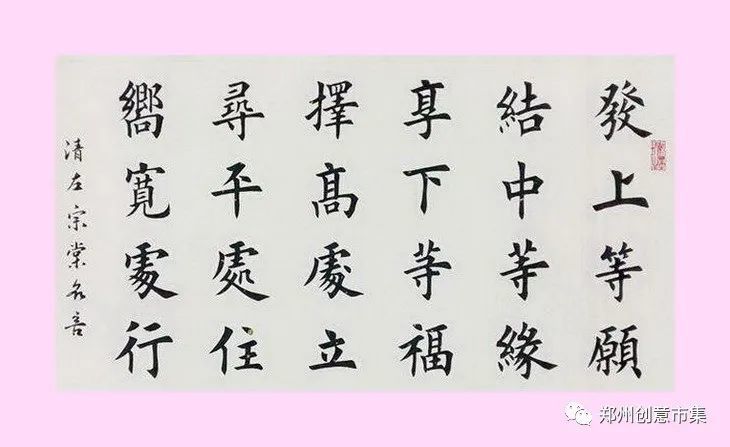 發上等願
結中等緣
享下等福
擇高處立
尋平處住
嚮寬處行
清左宗棠名言
郑州创意市集